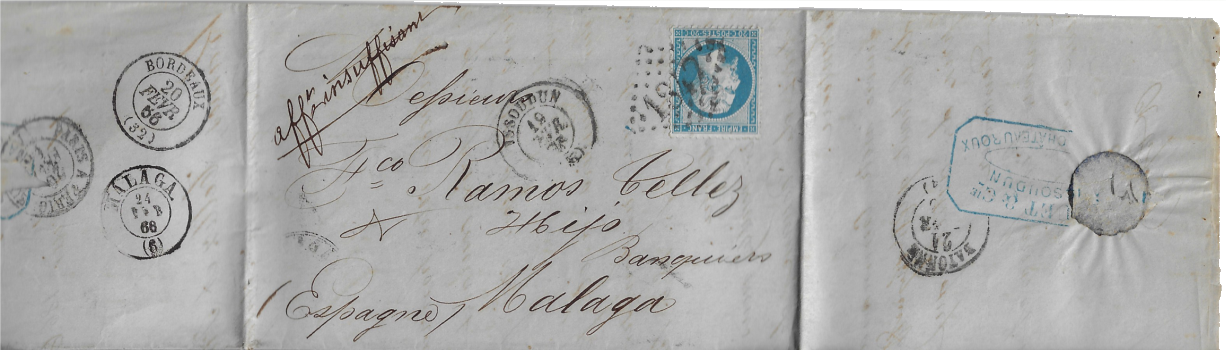 BORDEAUX
20
FEVR
66
(32)
PARIS
MÁLAGA
24
FEB
66
(6)
affr. insuffisant
Messieurs
ISSOUDUN
19
Fco Ramos Tellez
& Hijo
Banquiers
Malaga
(Espagne)
1847
20 C POSTES 20 C
EMPIRE FRANC
ET & CIE
ISSOUDUN
CHATEAUROUX
BAYONNE
21